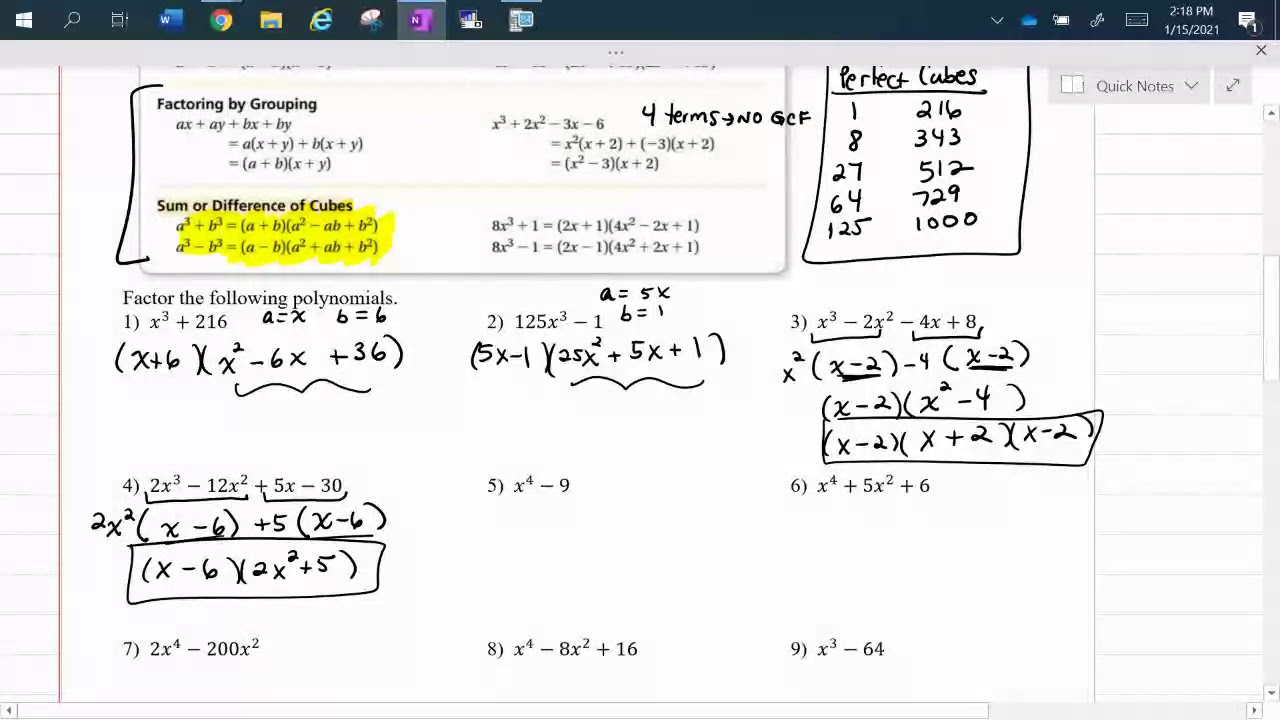 2:18 PM
1/15/2021
Quick Notes
Factoring by Grouping
ax + ay + bx + by
= a(x + y) + b(x + y)
= (a + b)(x + y)
x³ + 2x² − 3x − 6
= x²(x + 2) + (−3)(x + 2)
= (x² − 3)(x + 2)
4 terms → NO GCF
Sum or Difference of Cubes
a³ + b³ = (a + b)(a² − ab + b²)
a³ − b³ = (a − b)(a² + ab + b²)
8x³ + 1 = (2x + 1)(4x² − 2x + 1)
8x³ − 1 = (2x − 1)(4x² + 2x + 1)
Perfect Cubes
1 216
8 343
27 512
64 729
125 1000
Factor the following polynomials.
1) x³ + 216 a=x b=6
(x+6)(x² − 6x + 36)
a = 5x
b = 1
2) 125x³ − 1
(5x−1)(25x² + 5x + 1)
3) x³ − 2x² − 4x + 8
x²(x−2) −4(x−2)
(x−2)(x² − 4)
(x−2)(x+2)(x−2)
4) 2x³ − 12x² + 5x − 30
2x²(x − 6) +5(x−6)
(x − 6)(2x²+5)
5) x⁴ − 9
6) x⁴ + 5x² + 6
7) 2x⁴ − 200x²
8) x⁴ − 8x² + 16
9) x³ − 64